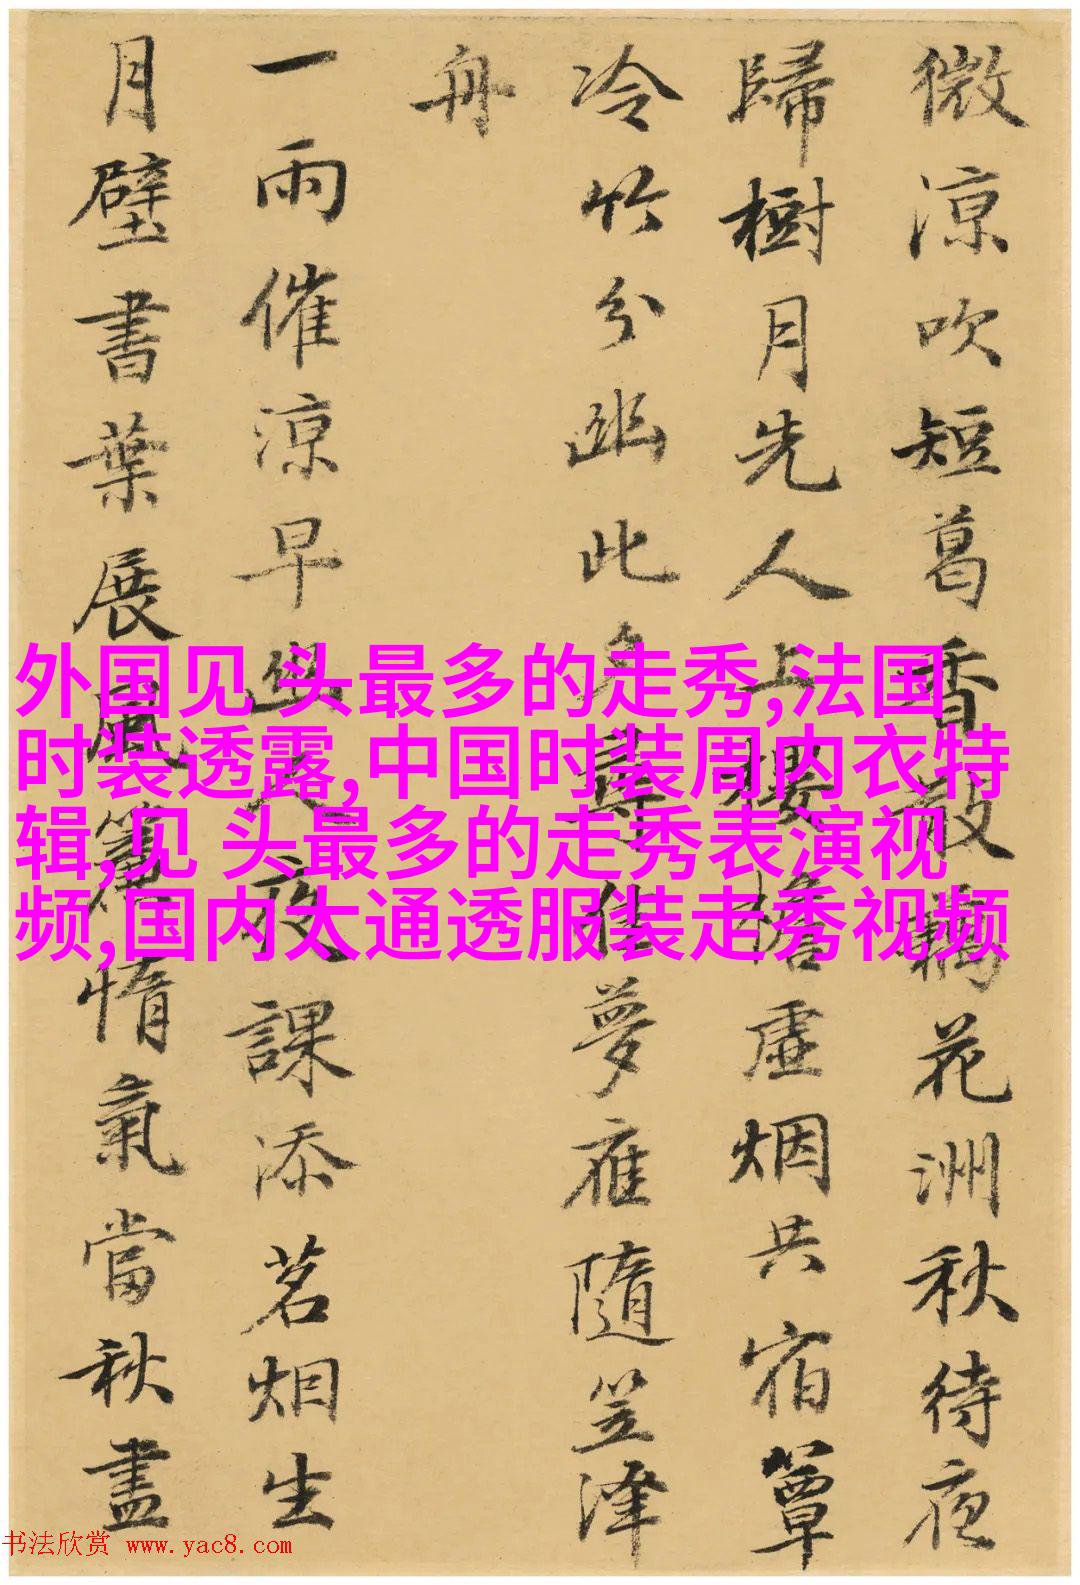 微涼吹短葛香散藕花洲秋待夜
歸樹月先人上樓檐虛烟共宿簟
冷竹分幽此夕尋佳夢應隨笠澤
舟
一雨催涼早幽人夜課添茗烟生
月壁書葉展風簾惰氣當秋盡
外国见 头最多的走秀,法国
时装透露,中国时装周内衣特
辑,见 头最多的走秀表演视
频,国内大通透服装走秀视频
书法欣赏 www.yac8.com